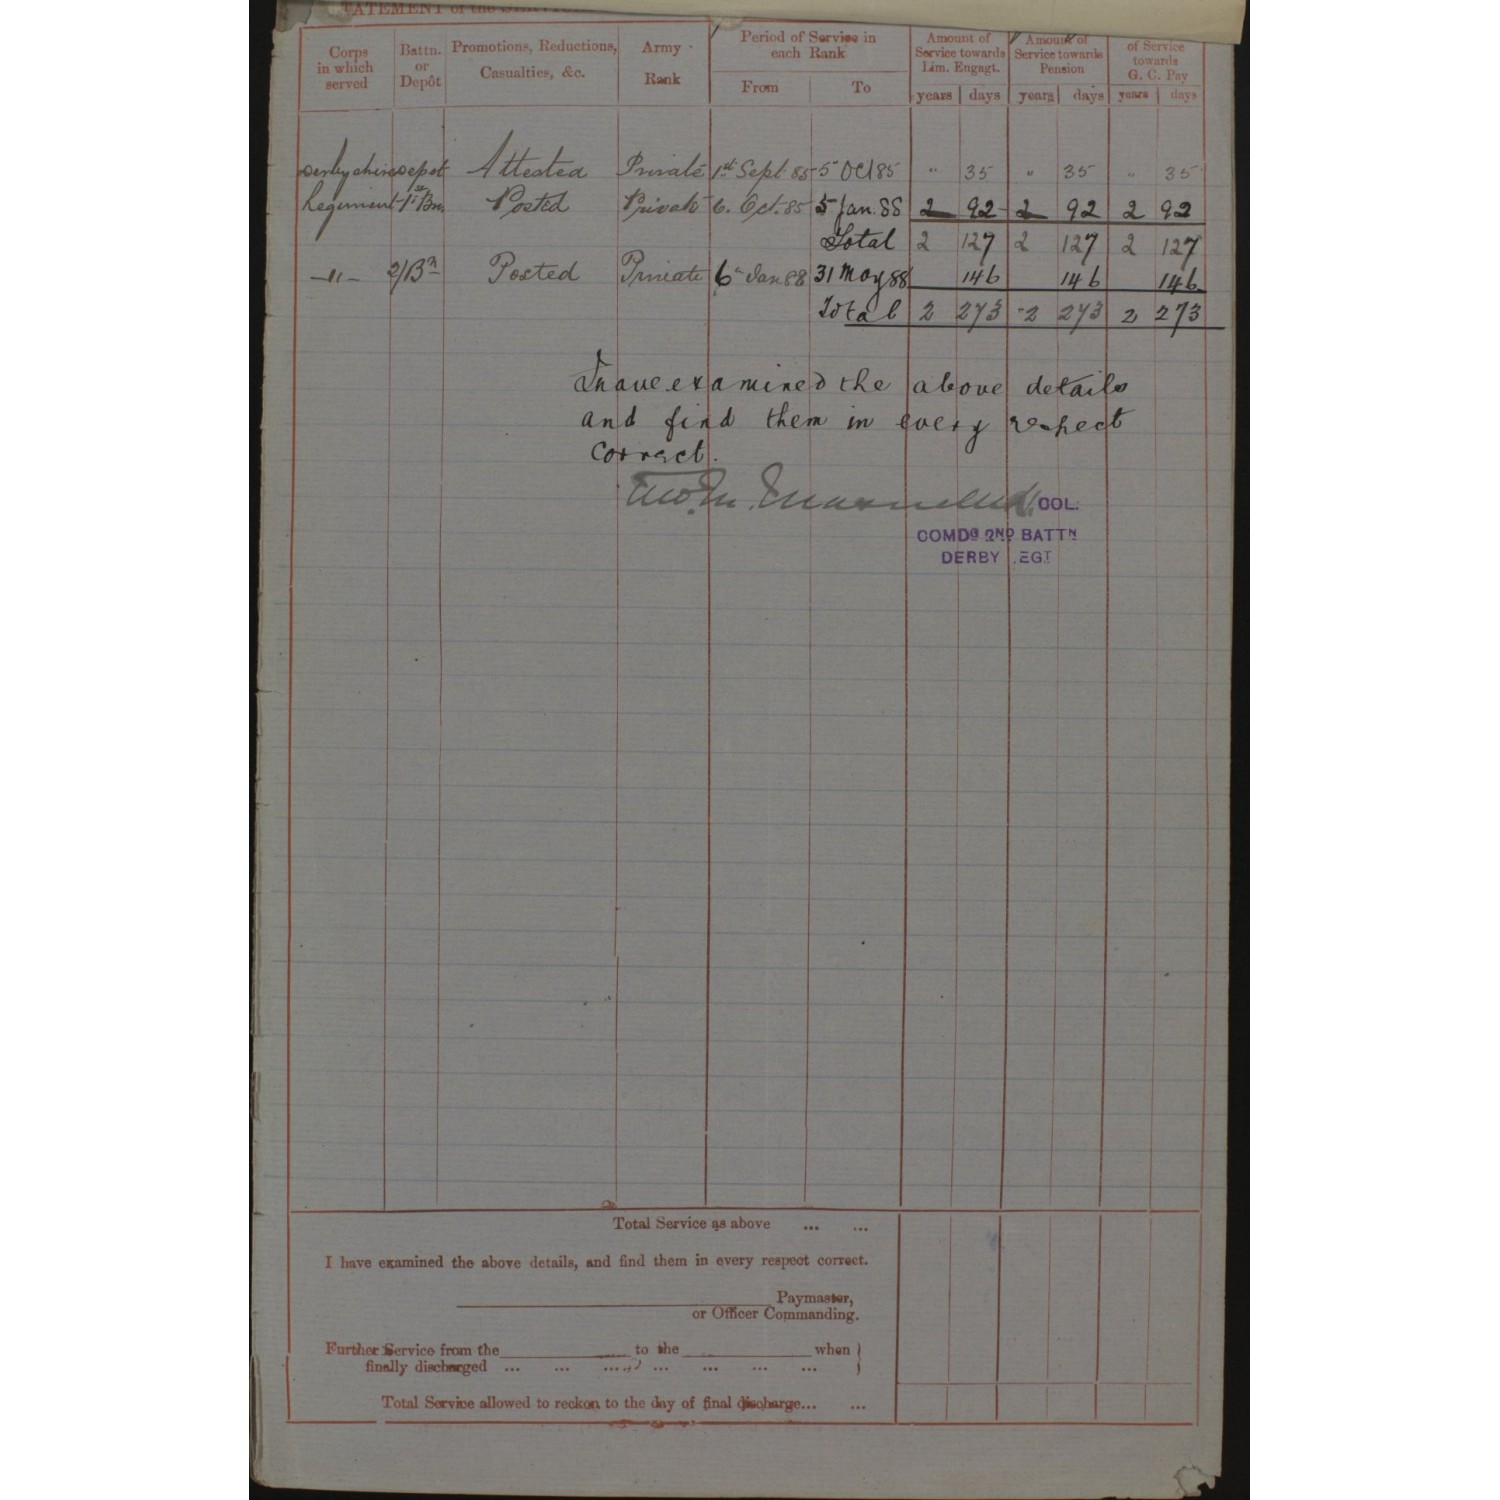 STATEMENT of the
Corps in which served | Battn. or Depôt | Promotions, Reductions, Casualties, &c. | Army Rank | Period of Service in each Rank | Amount of Service towards Lim. Engagt. | Amount of Service towards Pension | of Service towards G. C. Pay
From | To | years | days | years | days | years | days
Derbyshire | Depot | Attested | Private | 1st Sept 85 | 5 Oct 85 | " | 35 | " | 35 | " | 35
Regiment | 1st Bn. | Posted | Private | 6. Oct. 85 | 5 Jan. 88 | 2 | 92 | 2 | 92 | 2 | 92
Total | 2 | 127 | 2 | 127 | 2 | 127
—"— | 2/Bn | Posted | Private | 6 Jan 88 | 31 May 88 | 146 | 146 | 146
Total | 2 | 273 | 2 | 273 | 2 | 273
I have examined the above details
and find them in every respect
correct.
COL.
COMDG 2ND BATTN
DERBY .EGT
Total Service as above ... ...
I have examined the above details, and find them in every respect correct.
Paymaster,
or Officer Commanding.
Further Service from the to the when }
finally discharged ... ... ... ... ... ... ...
Total Service allowed to reckon to the day of final discharge... ...